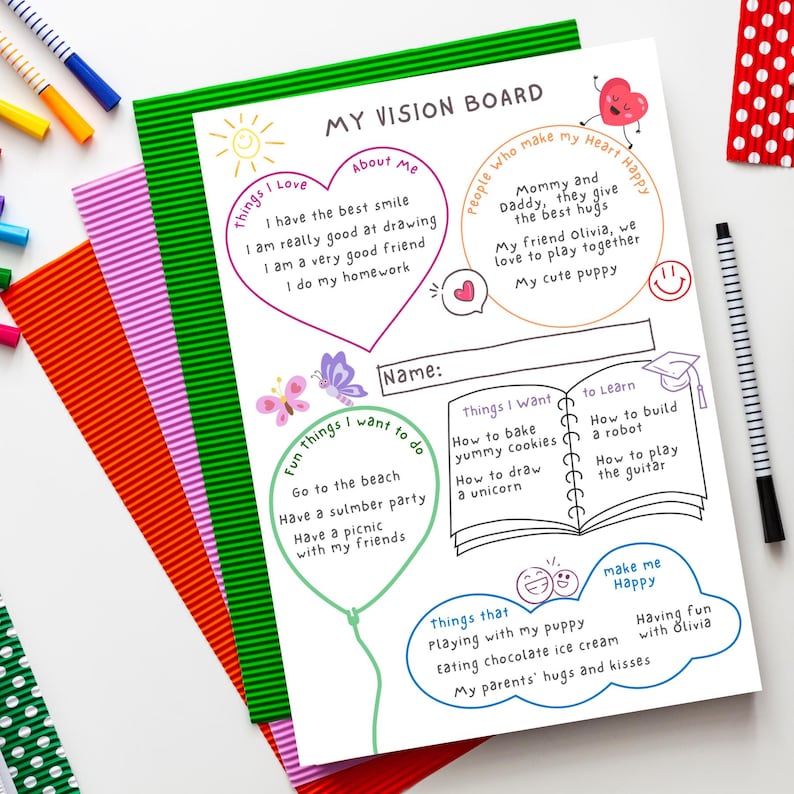 MY VISION BOARD
Things I Love About Me
I have the best smile
I am really good at drawing
I am a very good friend
I do my homework
People Who make my Heart Happy
Mommy and
Daddy, they give
the best hugs
My friend Olivia, we
love to play together
My cute puppy
Name:
Fun things I want to do
Go to the beach
Have a sulmber party
Have a picnic
with my friends
Things I Want to Learn
How to bake
yummy cookies
How to draw
a unicorn
How to build
a robot
How to play
the guitar
Things that make me
Happy
Playing with my puppy
Eating chocolate ice cream
Having fun
with Olivia
My parents' hugs and kisses